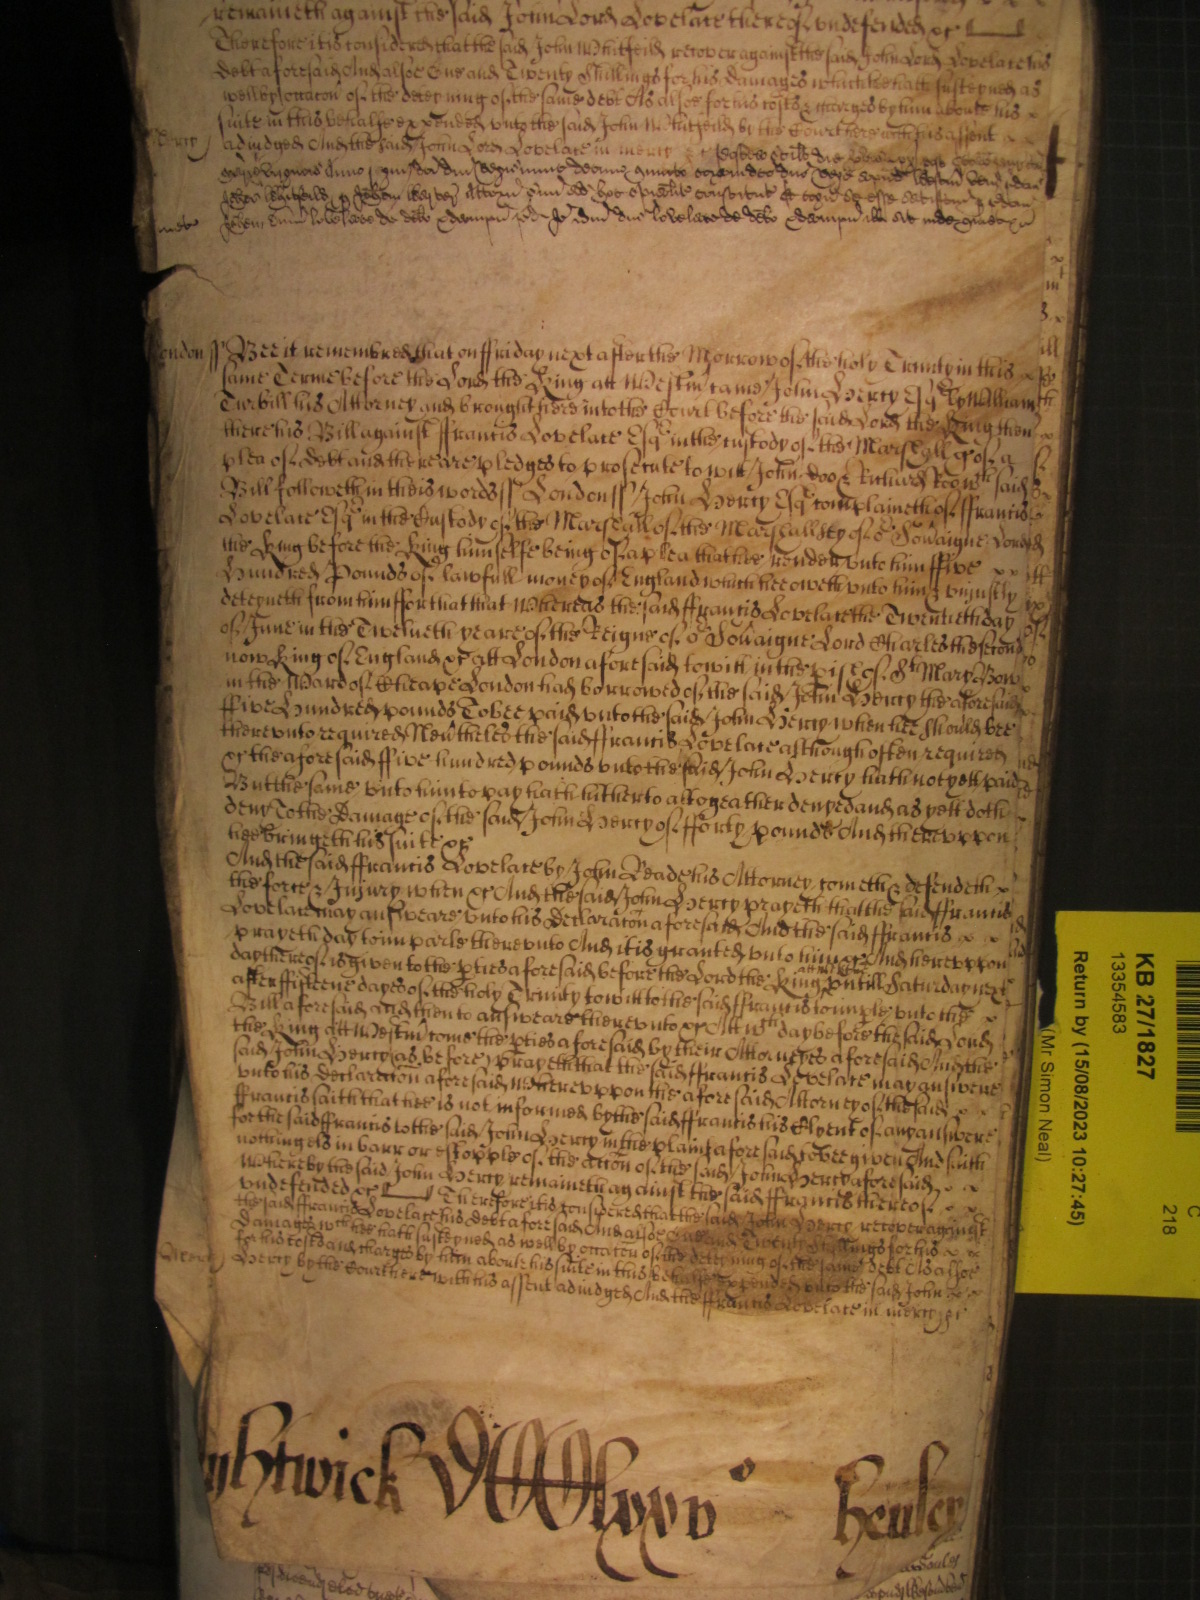 remaineth against the said John Lord Lovelace thereof undefended &c
Therefore it is considered that the said John Whitfeild recover against the said John Lord Lovelace his
debt aforesaid And alsoe One and Twenty Shillings for his damages which hee hath susteyned as
well by occacon of the deteyning of the same debt As alsoe for his costs & charges by him about his
suite in this behalfe expended unto the said John Whitfeild by the Court here with his assent
adjudged And the said John Lord Lovelace in mercy &c
mercy
London ss Bee it remembred that on ffriday next after the Morrow of the holy Trinity in this
same Terme before the Lord the King att Westm came John Hercy Esqr by William
Turbill his Attorney and brought here into the Court before the said Lord the King then
there his Bill against ffrancis Lovelace Esqr in the custody of the Marshall &c of a
plea of debt and there are pledges to prosecute to witt John Doo & Richard Roo wch said
Bill followeth in theis words ss London ss John Hercy Esqr complaineth of ffrancis
Lovelace Esqr in the Custody of the Marshall of the Marshallsey of or Sovaigne Lord
the King before the King himselfe being of a plea that hee render unto him ffive
Hundred Pounds of lawfull money of England which hee oweth unto him & unjustly
deteyneth from him ffor that that Whereas the said ffrancis Lovelace the Twentieth day
of June in the Twelveth yeare of the Reigne of or Sovaigne Lord Charles the second
now King of England &c att London aforesaid to witt in the pish of St Mary Bow
in the Ward of Cheape London had borrowed of the said John Hercy the aforesaid
ffive Hundred pounds To bee paid unto the said John Hercy when hee should bee
thereunto required Nevtheles the said ffrancis Lovelace although often required
&c the aforesaid ffive hundred pounds unto the said John Hercy hath not yett paid
But the same unto him to pay hath hitherto altogeather denyed and as yett doth
deny To the Damage of the said John Hercy of fforty pounds And thereuppon
hee bringeth his suite &c
And the said ffrancis Lovelace by John Reade his Attorney cometh & defendeth
the force & Injury when &c And the said John Hercy prayeth that the said ffrancis
Lovelace may answeare unto his declaracon aforesaid And the said ffrancis
prayeth day to imparle thereunto And it is granted unto him &c And hereuppon
day thereof is given to the pties aforesaid before the Lord the King att Westm untill Saturday next
after ffifteene dayes of the holy Trinity to witt to the said ffrancis to imple unto the
Bill aforesaid and then to answeare thereunto &c Att wch day before the said Lord
the King att Westm come the pties aforesaid by their Attorneyes aforesaid And the
said John Hercy as before prayeth that the said ffrancis Lovelace may answere
unto his declaracon aforesaid Whereuppon the aforesaid Attorney of the said
ffrancis saith that hee is not informed by the said ffrancis his Clyent of any answere
for the said ffrancis to the said John Hercy in the plaint aforesaid to bee given And saith
nothing els in barr or estopple of the action of the said John Hercy aforesaid
Whereby the said John Hercy remaineth against the said ffrancis thereof
undefended &c Therefore it is considered that the said John Hercy recover against
the said ffrancis Lovelace his debt aforesaid And alsoe One and Twenty Shillings for his
damages wch hee hath susteyned as well by occacon of the deteyning of the same debt As alsoe
for his costs and charges by him about his suite in this behalfe expended unto the said John
Hercy by the Court here with his assent adjudged And the ffrancis Lovelace in mercy &c
mercy
ghtwick
Henley
KB 27/1827
13354583
Return by (15/08/2023 10:27:45)
(Mr Simon Neal)
C
218